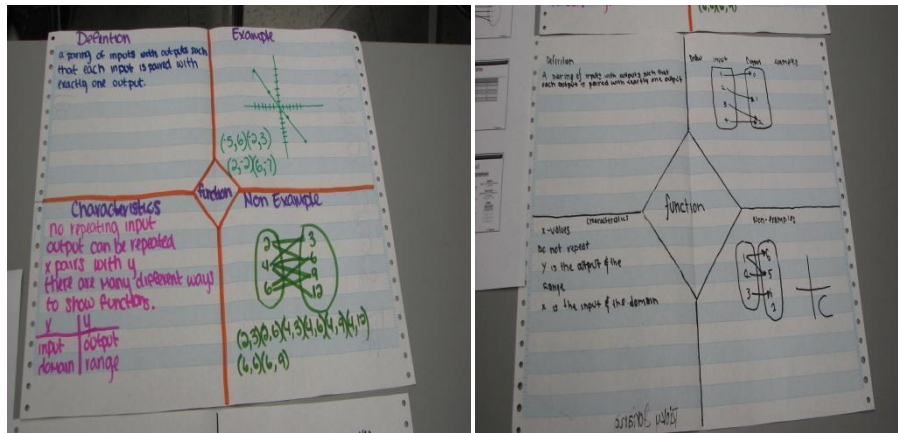 Definition
a pairing of inputs with outputs such
that each input is paired with
exactly one output.
Example
(-5,6)(-2,3)
(2,-2)(6,-7)
function
Characteristics
no repeating input
output can be repeated
x pairs with y
there are many different ways
to show functions.
x y
input output
domain range
Non Example
2 3
4 6
6 9
12
(2,3)(2,6)(4,3)(4,6)(4,9)(4,12)
(6,6)(6,9)
Definition
A pairing of inputs with outputs such that
each output is paired with exactly one output
input
function
Characteristics
x-values
do not repeat
y is the output of the
range
x is the input of the domain